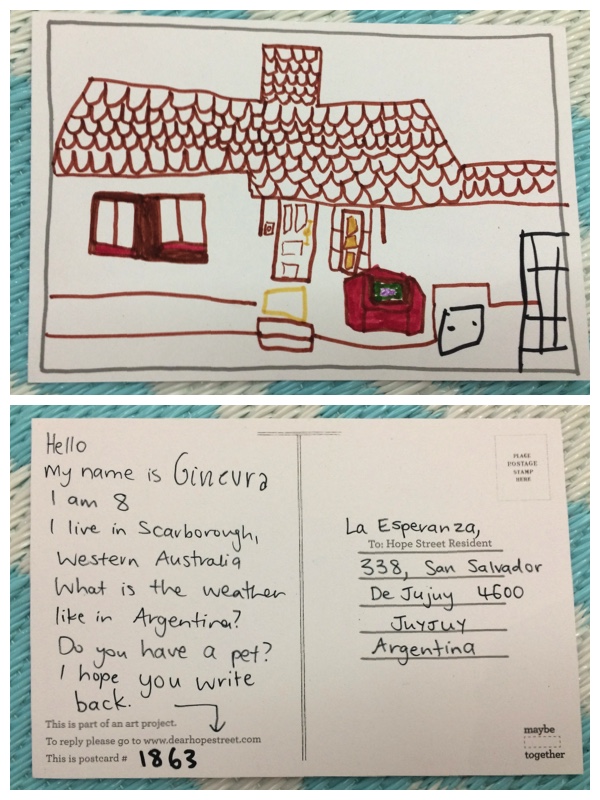 Hello
My name is Ginevra
I am 8
I live in Scarborough,
Western Australia
What is the weather
like in Argentina?
Do you have a pet?
I hope you write
back.
This is part of an art project.
To reply please go to www.dearhopestreet.com
This is postcard # 1863
PLACE
POSTAGE
STAMP
HERE
La Esperanza,
To: Hope Street Resident
338, San Salvador
De Jujuy 4600
JUYJUY
Argentina
maybe
together